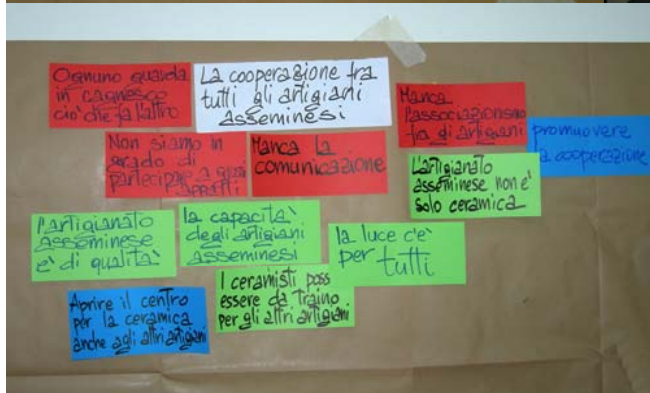 Ognuno guarda
in cagnesco
ciò che fa l'altro
La cooperazione fra
tutti gli artigiani
asseminesi
Manca
l'associazionismo
fra gli artigiani
promuovere
la cooperazione
Non siamo in
grado di
partecipare a
appalti
Manca la
comunicazione
L'artigianato
asseminese non è
solo ceramica
l'artigianato
asseminese
è di qualità
la capacità
degli artigiani
asseminesi
la luce c'è
per tutti
Aprire il centro
per la ceramica
anche agli altri artigiani
I ceramisti poss
essere da traino
per gli altri artigiani